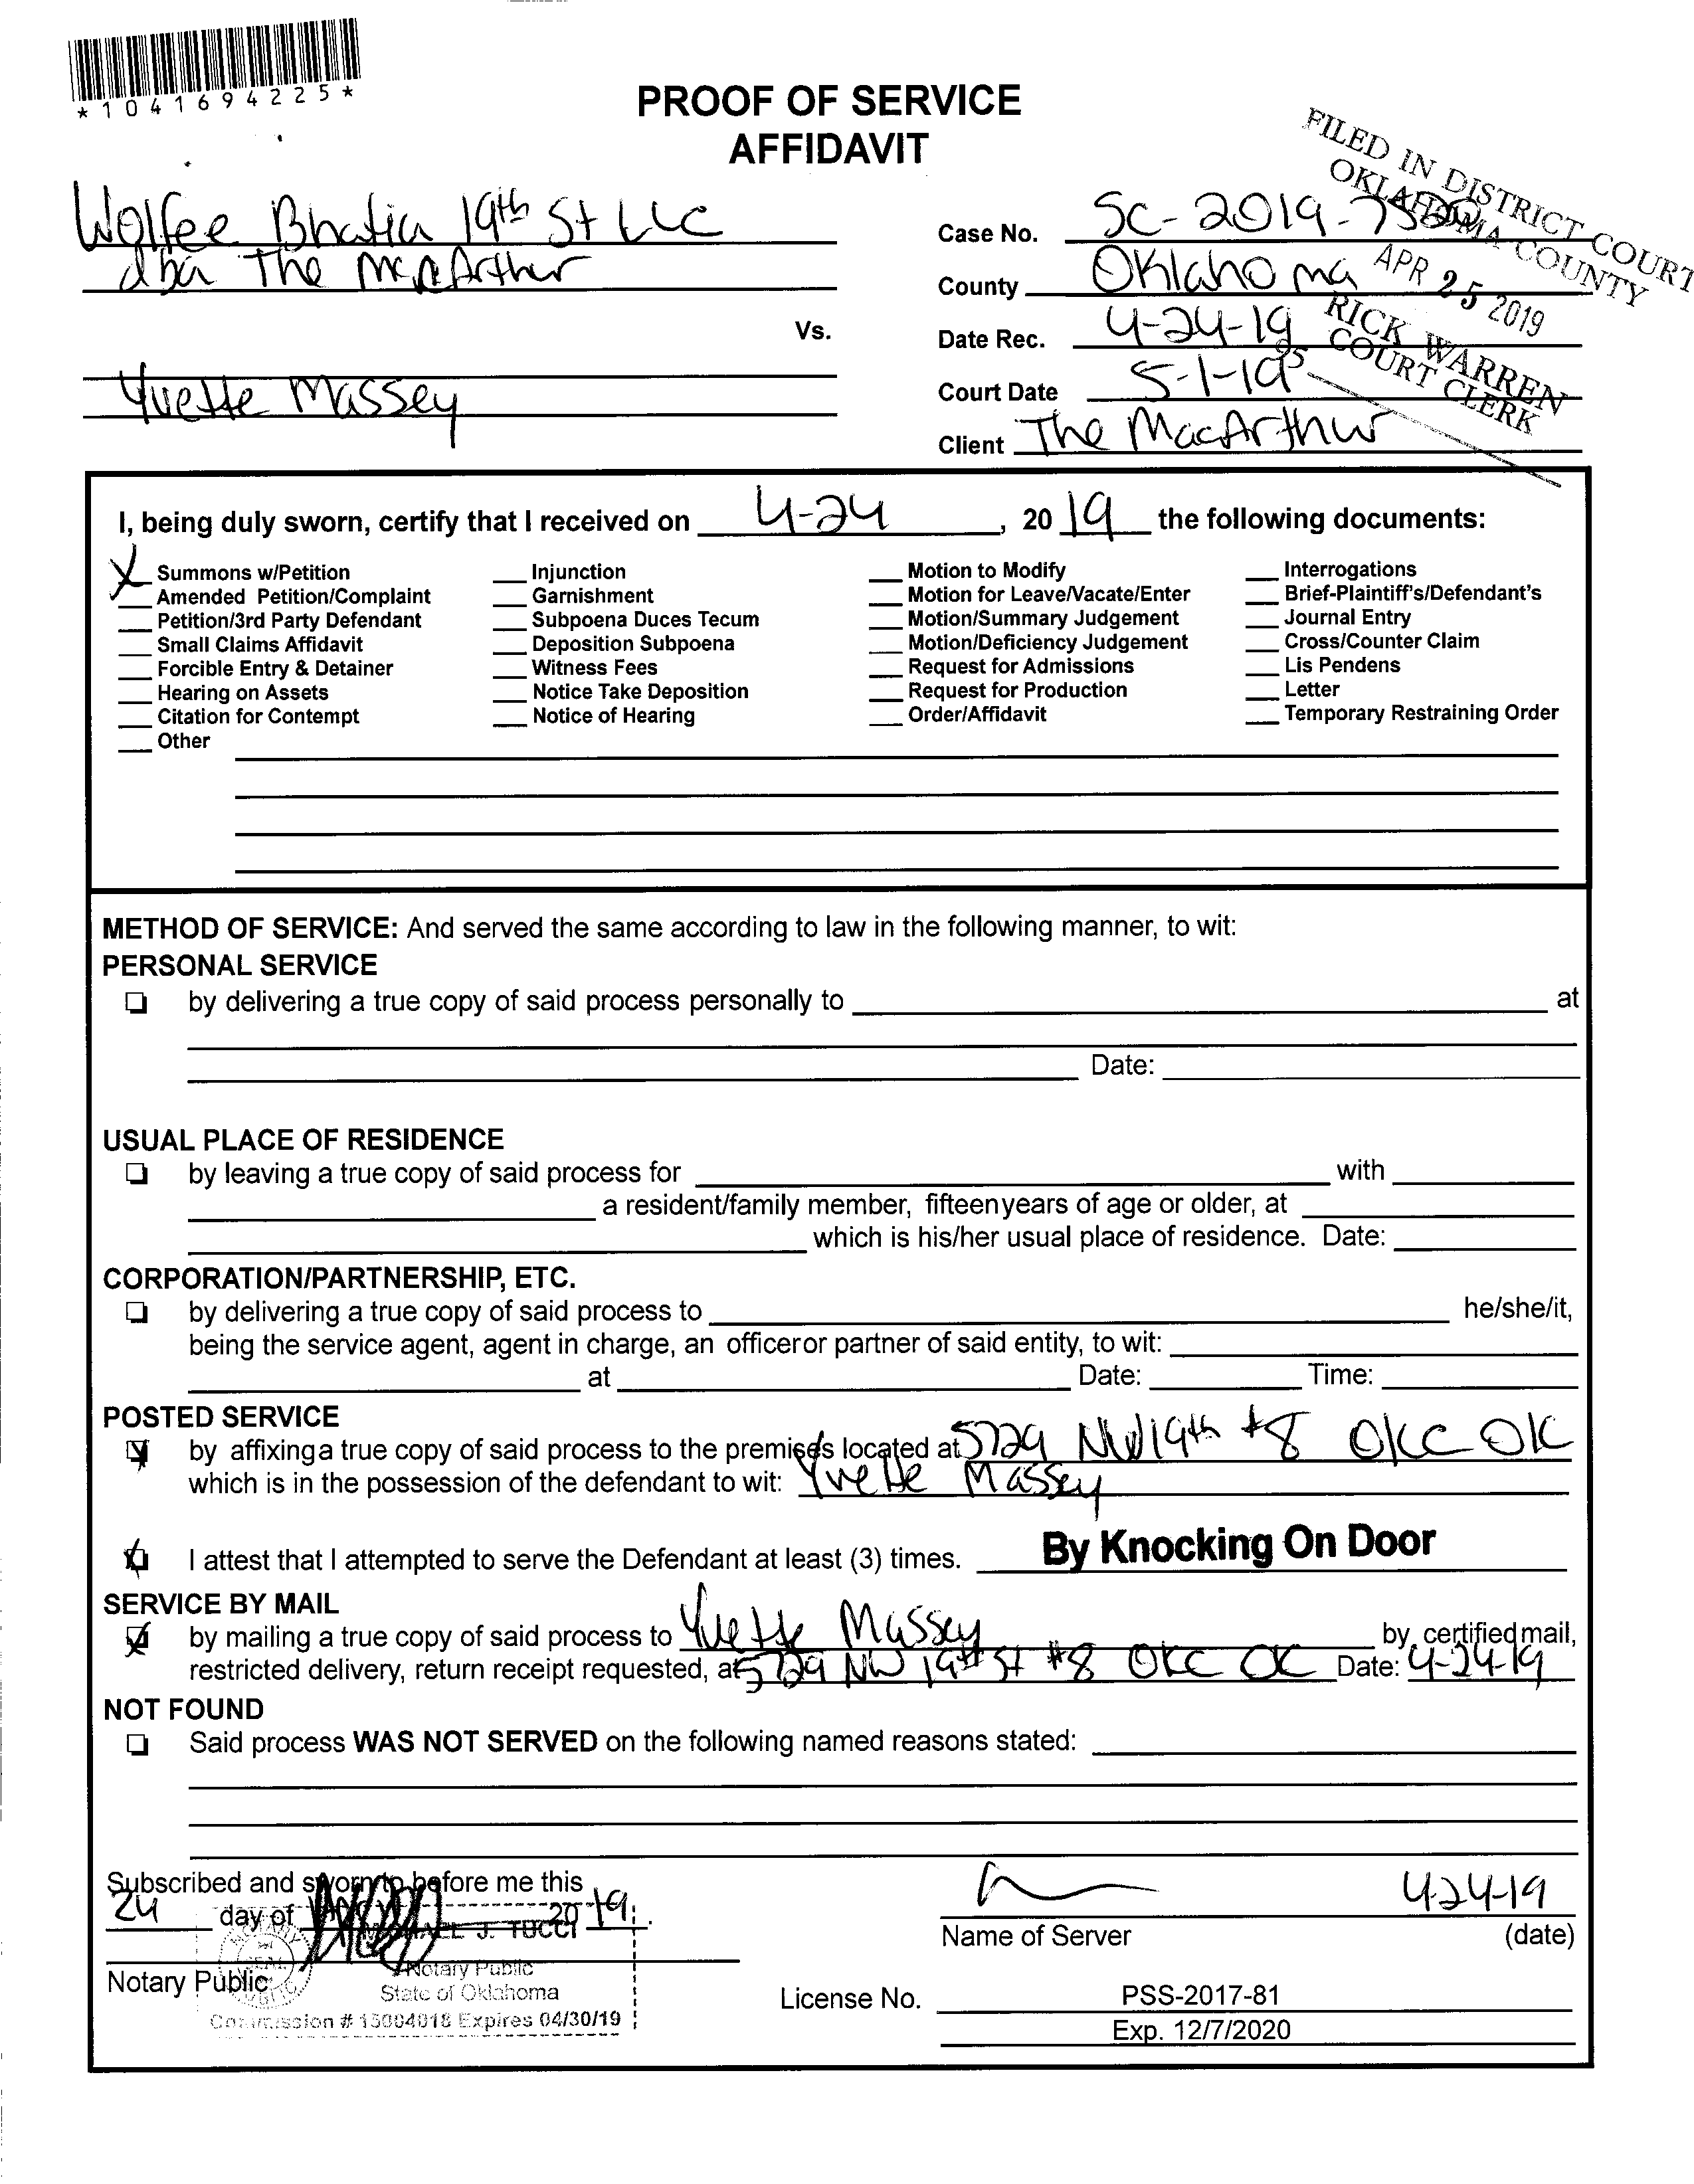 *1041694225*
PROOF OF SERVICE
AFFIDAVIT
FILED IN DISTRICT COURT
OKLAHOMA COUNTY
APR 25 2019
RICK WARREN
COURT CLERK
Wolfee Bhatia 19th St LLC
dba The MacArthur
Vs.
Yvette Massey
Case No. SC-2019-
County Oklahoma
Date Rec. 4-24-19
Court Date 5-1-19
Client The MacArthur
I, being duly sworn, certify that I received on 4-24, 20 19 the following documents:
X Summons w/Petition
Amended Petition/Complaint
Petition/3rd Party Defendant
Small Claims Affidavit
Forcible Entry & Detainer
Hearing on Assets
Citation for Contempt
Other
Injunction
Garnishment
Subpoena Duces Tecum
Deposition Subpoena
Witness Fees
Notice Take Deposition
Notice of Hearing
Motion to Modify
Motion for Leave/Vacate/Enter
Motion/Summary Judgement
Motion/Deficiency Judgement
Request for Admissions
Request for Production
Order/Affidavit
Interrogations
Brief-Plaintiff's/Defendant's
Journal Entry
Cross/Counter Claim
Lis Pendens
Letter
Temporary Restraining Order
METHOD OF SERVICE: And served the same according to law in the following manner, to wit:
PERSONAL SERVICE
by delivering a true copy of said process personally to at
Date:
USUAL PLACE OF RESIDENCE
by leaving a true copy of said process for with
a resident/family member, fifteenyears of age or older, at
which is his/her usual place of residence. Date:
CORPORATION/PARTNERSHIP, ETC.
by delivering a true copy of said process to he/she/it,
being the service agent, agent in charge, an officeror partner of said entity, to wit:
at Date: Time:
POSTED SERVICE
by affixinga true copy of said process to the premises located at 5729 NW 19th #8 OKC OK
which is in the possession of the defendant to wit: Yvette Massey
I attest that I attempted to serve the Defendant at least (3) times. By Knocking On Door
SERVICE BY MAIL
by mailing a true copy of said process to Yvette Massey by certified mail,
restricted delivery, return receipt requested, at 5729 NW 19th St #8 OKC OK Date: 4-24-19
NOT FOUND
Said process WAS NOT SERVED on the following named reasons stated:
Subscribed and sworn to before me this
24 day of 20 19.
MICHAEL J. TUCCI
Notary Public
Notary Public
State of Oklahoma
Commission # 15004018 Expires 04/30/19
4-24-19
Name of Server (date)
License No. PSS-2017-81
Exp. 12/7/2020